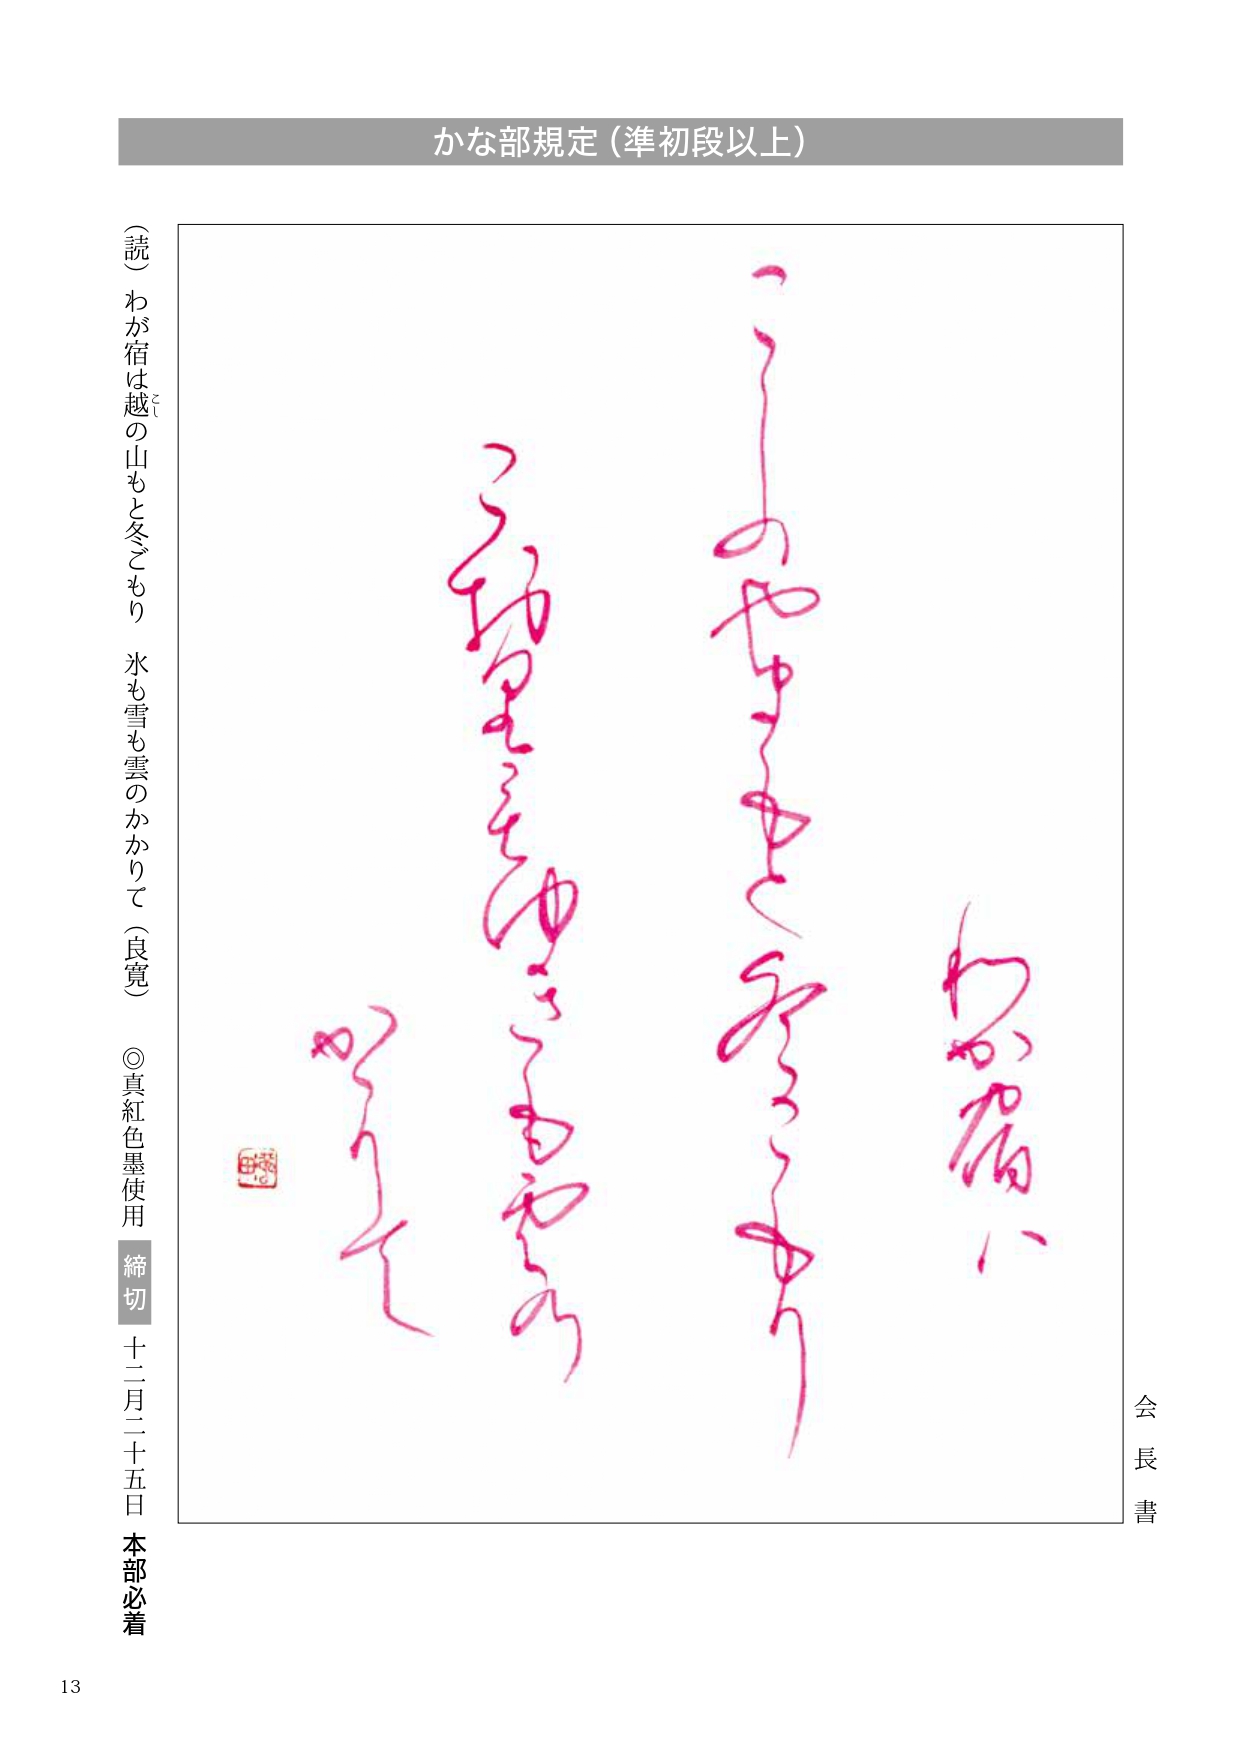 かな部規定（準初段以上）
会長書
わか宿ハ
こしのやまもと冬こもり
こ能里もゆきも雲の
かゝりて
（読）わが宿は越の山もと冬ごもり　氷も雪も雲のかかりて（良寛）　◎真紅色墨使用　締切　十二月二十五日　本部必着
こし
13